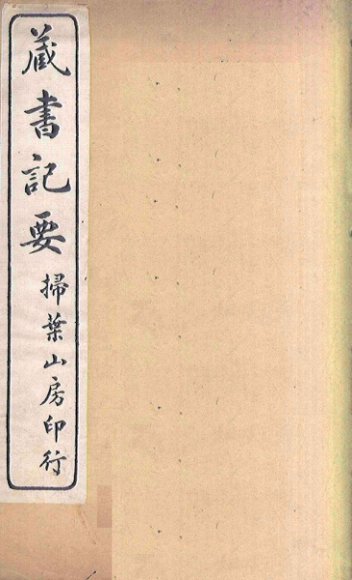 藏書記要
掃葉山房印行